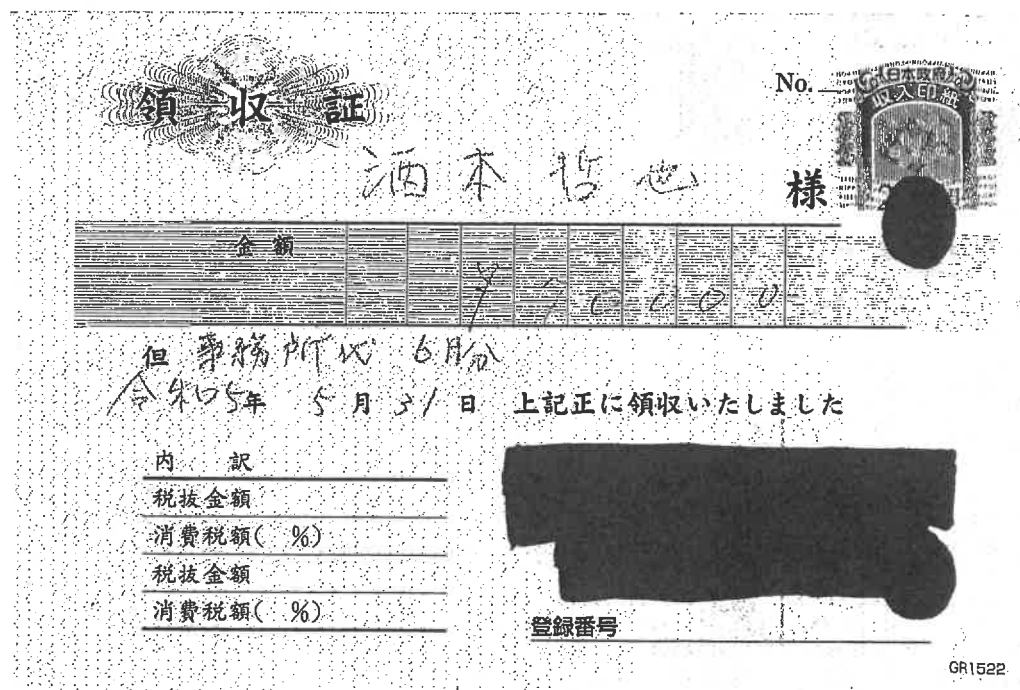 領収証
No.
日本政府
収入印紙
酒本哲也 様
金額
¥10000
但 事務所代 6月分
令和5年 5月31日 上記正に領収いたしました
内 訳
税抜金額
消費税額( %)
税抜金額
消費税額( %)
登録番号
GR1522